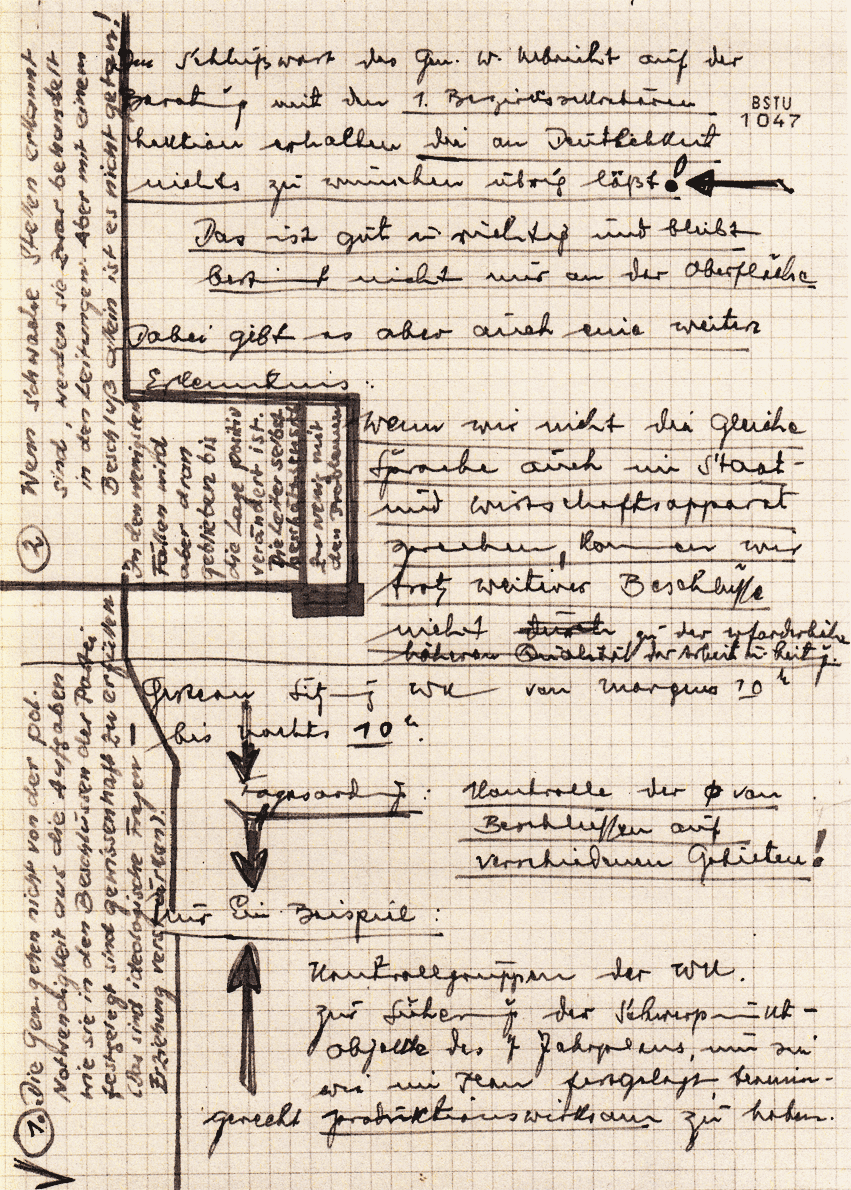 Im Schlußwort des Gen. W. Ulbricht auf der
Beratung mit den 1. Bezirkssekretären
BSTU
1047
erhalten die an Deutlichkeit
nichts zu wünschen übrig läßt!
Das ist gut u. richtig und bleibt
bestimmt nicht nur an der Oberfläche
Dabei gibt es aber auch eine weitere
Erkenntnis.
Wenn wir nicht die gleiche
Sprache auch im Staat-
und Wirtschaftsapparat
sprechen, kommen wir
trotz weiterer Beschlüsse
nicht durch zu der erforderliche
höheren Qualität der Arbeit
Gestern Sitzung WK von morgens 10 h
bis nachts 10 h.
Tagesordng: Kontrolle der ϕ von
Beschlüssen auf
verschiedenen Gebieten!
Nur Ein Beispiel:
Kontrollgruppen der WK.
zur Sicherung der Schwerpunkt-
objekte des 7 Jahrplans, um sie
wie im festgelegt termin-
gerecht produktionswirksam zu haben.
2. Wenn schwache Stellen erkannt
sind, werden sie zwar behandelt
in den Leitungen. Aber mit einem
Beschluß allein ist es nicht getan!
In den wenigsten
Fällen wird
aber dran
geblieben bis
die Lage positiv
verändert ist.
Die Leiter selbst
zu wenig mit
den Problemen
1. Die Gen. gehen nicht von der pol.
Notwendigkeit aus die Aufgaben
wie sie in den Beschlüssen der Partei
festgelegt sind gewissenhaft zu erfüllen
(Das sind ideologische Fragen –
Erziehung verstärken).